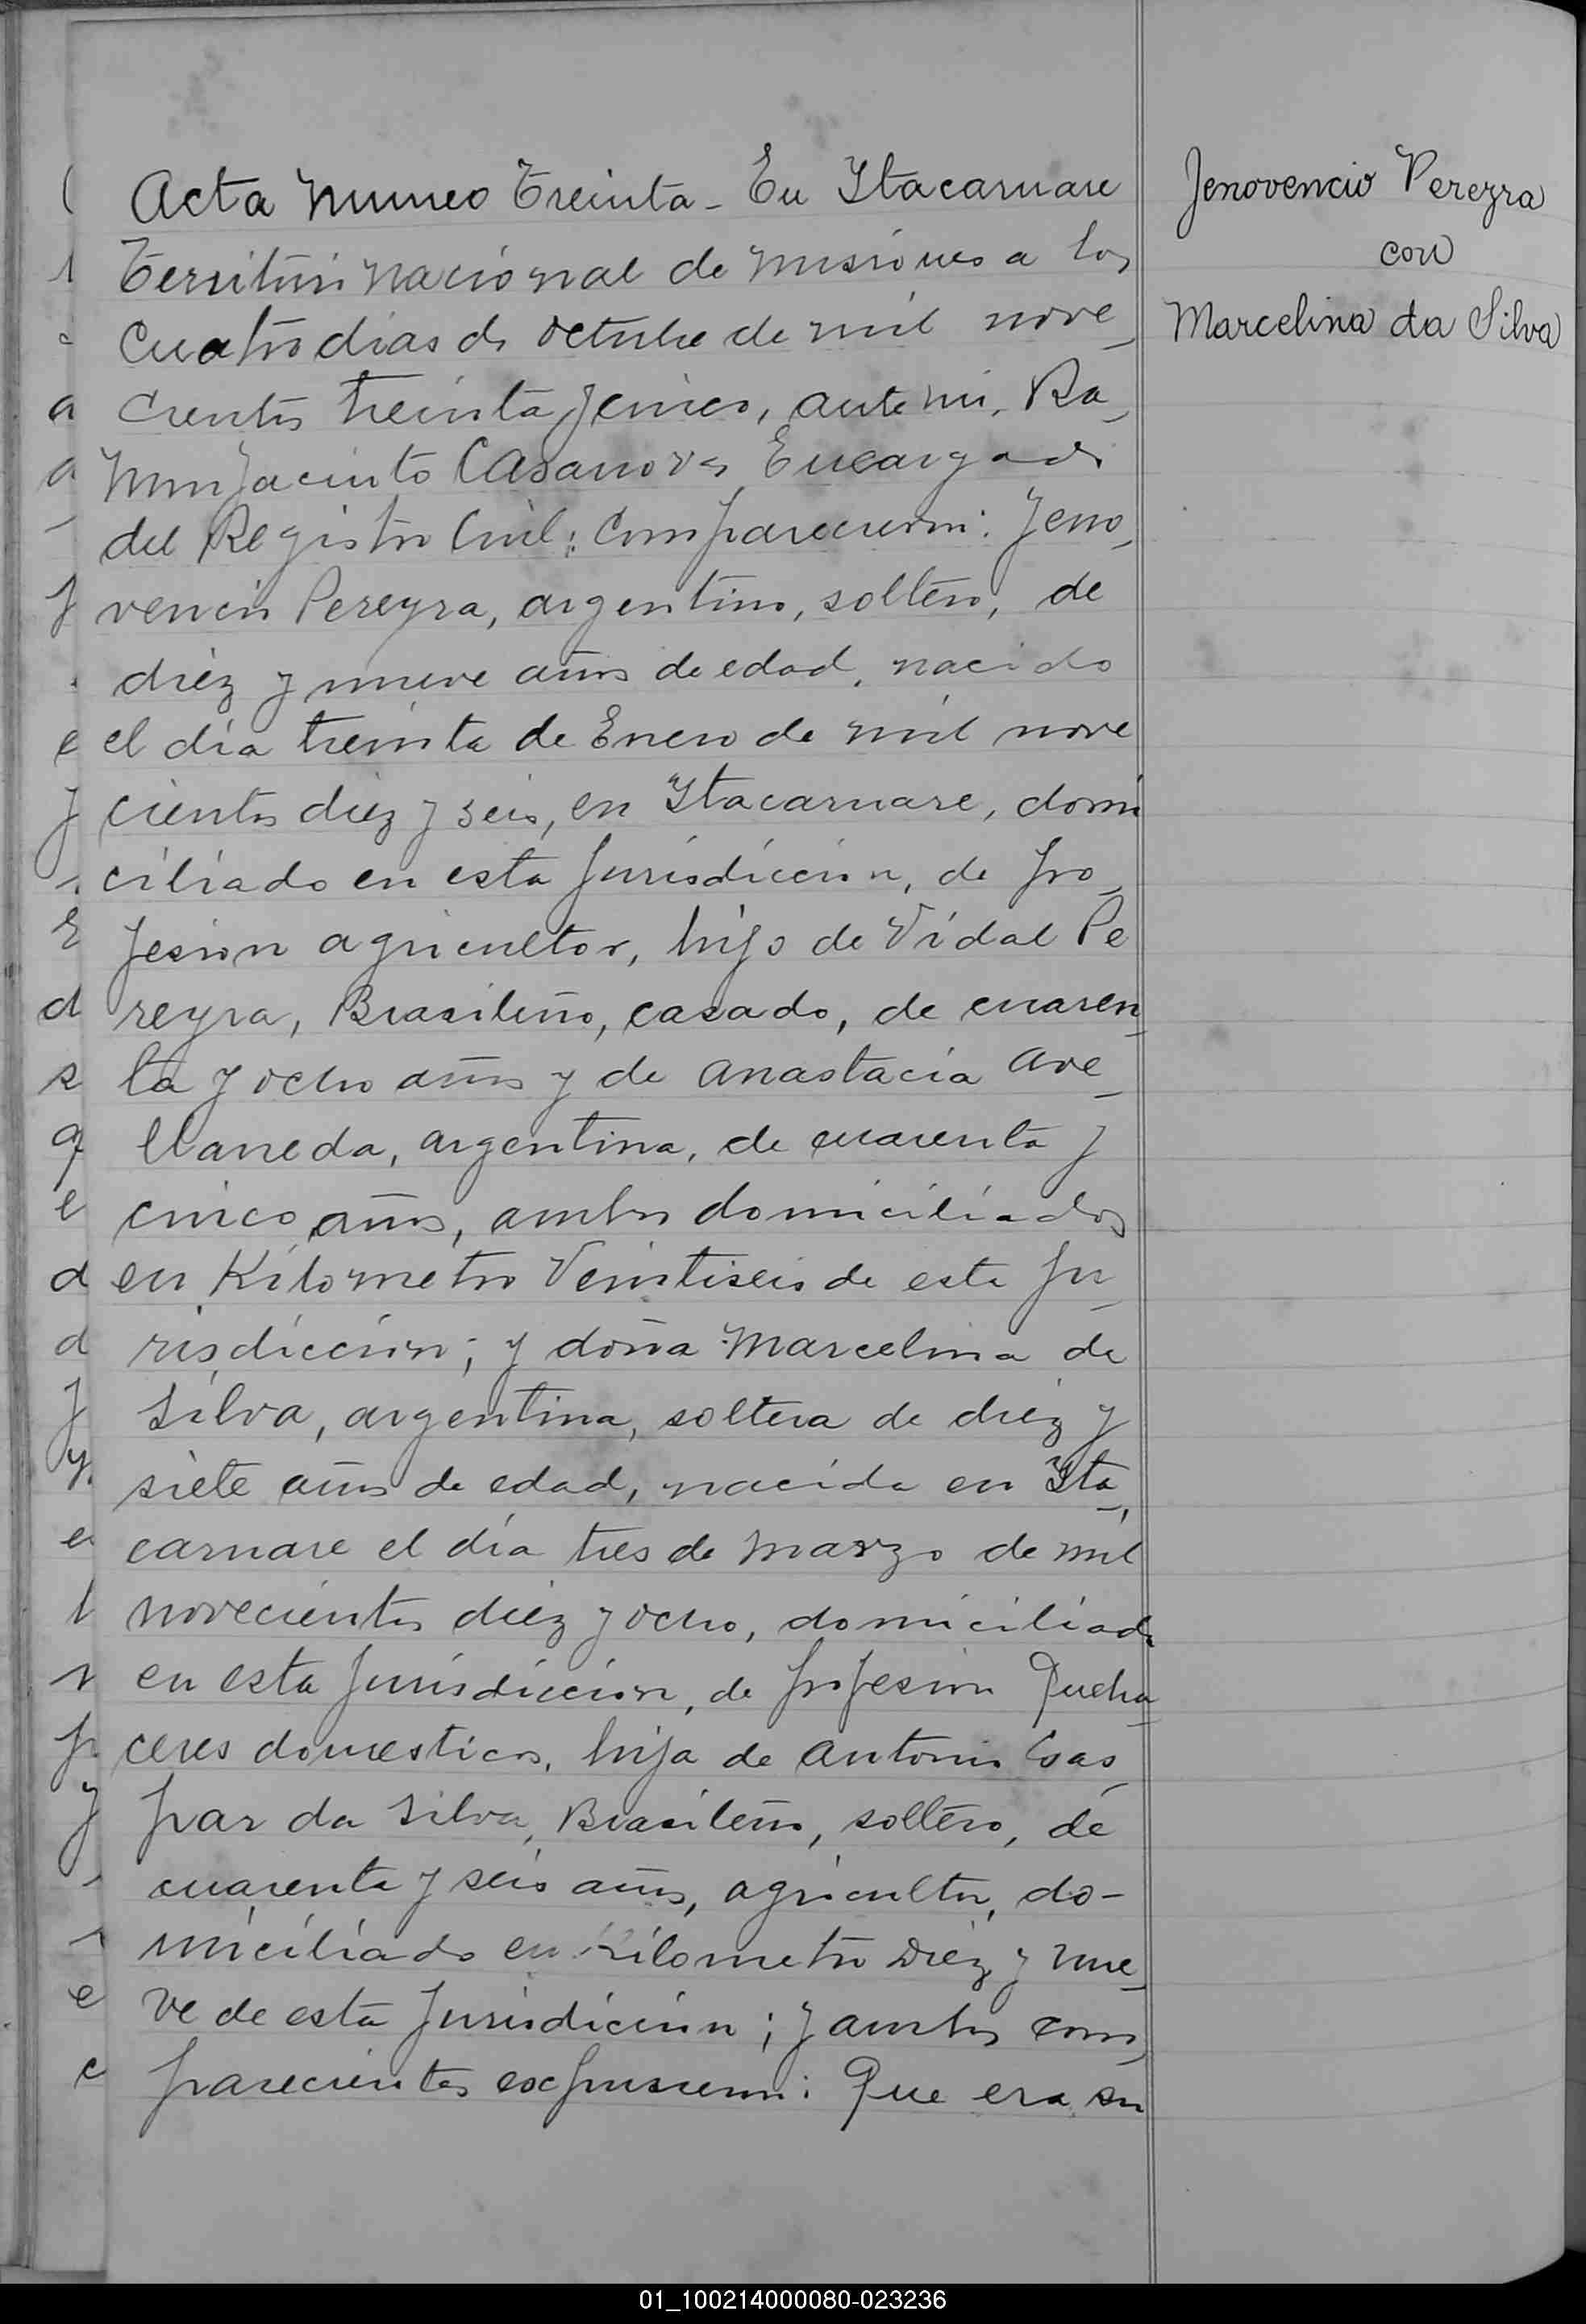 Acta Numero Treinta - En Itacaruare
Territorio Nacional de Misiones a los
Cuatro dias de Octubre de mil nove_
cientos treinta y cinco, ante mi, Ra_
mon Jacinto Casanovas Encargado
del Registro Civil: Comparecieron: Jeno_
vencio Pereyra, argentino, soltero, de
diez y nueve años de edad, nacido
el día treinta de Enero de mil nove
cientos diez y seis, en Itacaruare, domi
ciliado en esta Jurisdiccion, de pro_
fesion agricultor, hijo de Vidal Pe
reyra, Brasileño, casado, de cuaren_
ta y ocho años y de Anastacia Ave_
llaneda, argentina, de cuarenta y
cinco años, ambos domiciliados
en Kilometro Veintiseis de esta Ju_
risdiccion; y doña Marcelina da
Silva, argentina, soltera de diez y
siete años de edad, nacida en Ita_
caruare el día tres de Marzo de mil
novecientos diez y ocho, domiciliada
en esta Jurisdiccion, de profesion Queha_
ceres domesticos, hija de Antonio Gas_
par da Silva, Brasileño, soltero, de
cuarenta y seis años, agricultor, do-
miciliado en Kilometro Diez y nue_
ve de esta Jurisdiccion; y ambos com_
parecientes expusieron: Que era su
Jenovencio Pereyra
con
Marcelina da Silva
01_100214000080-023236